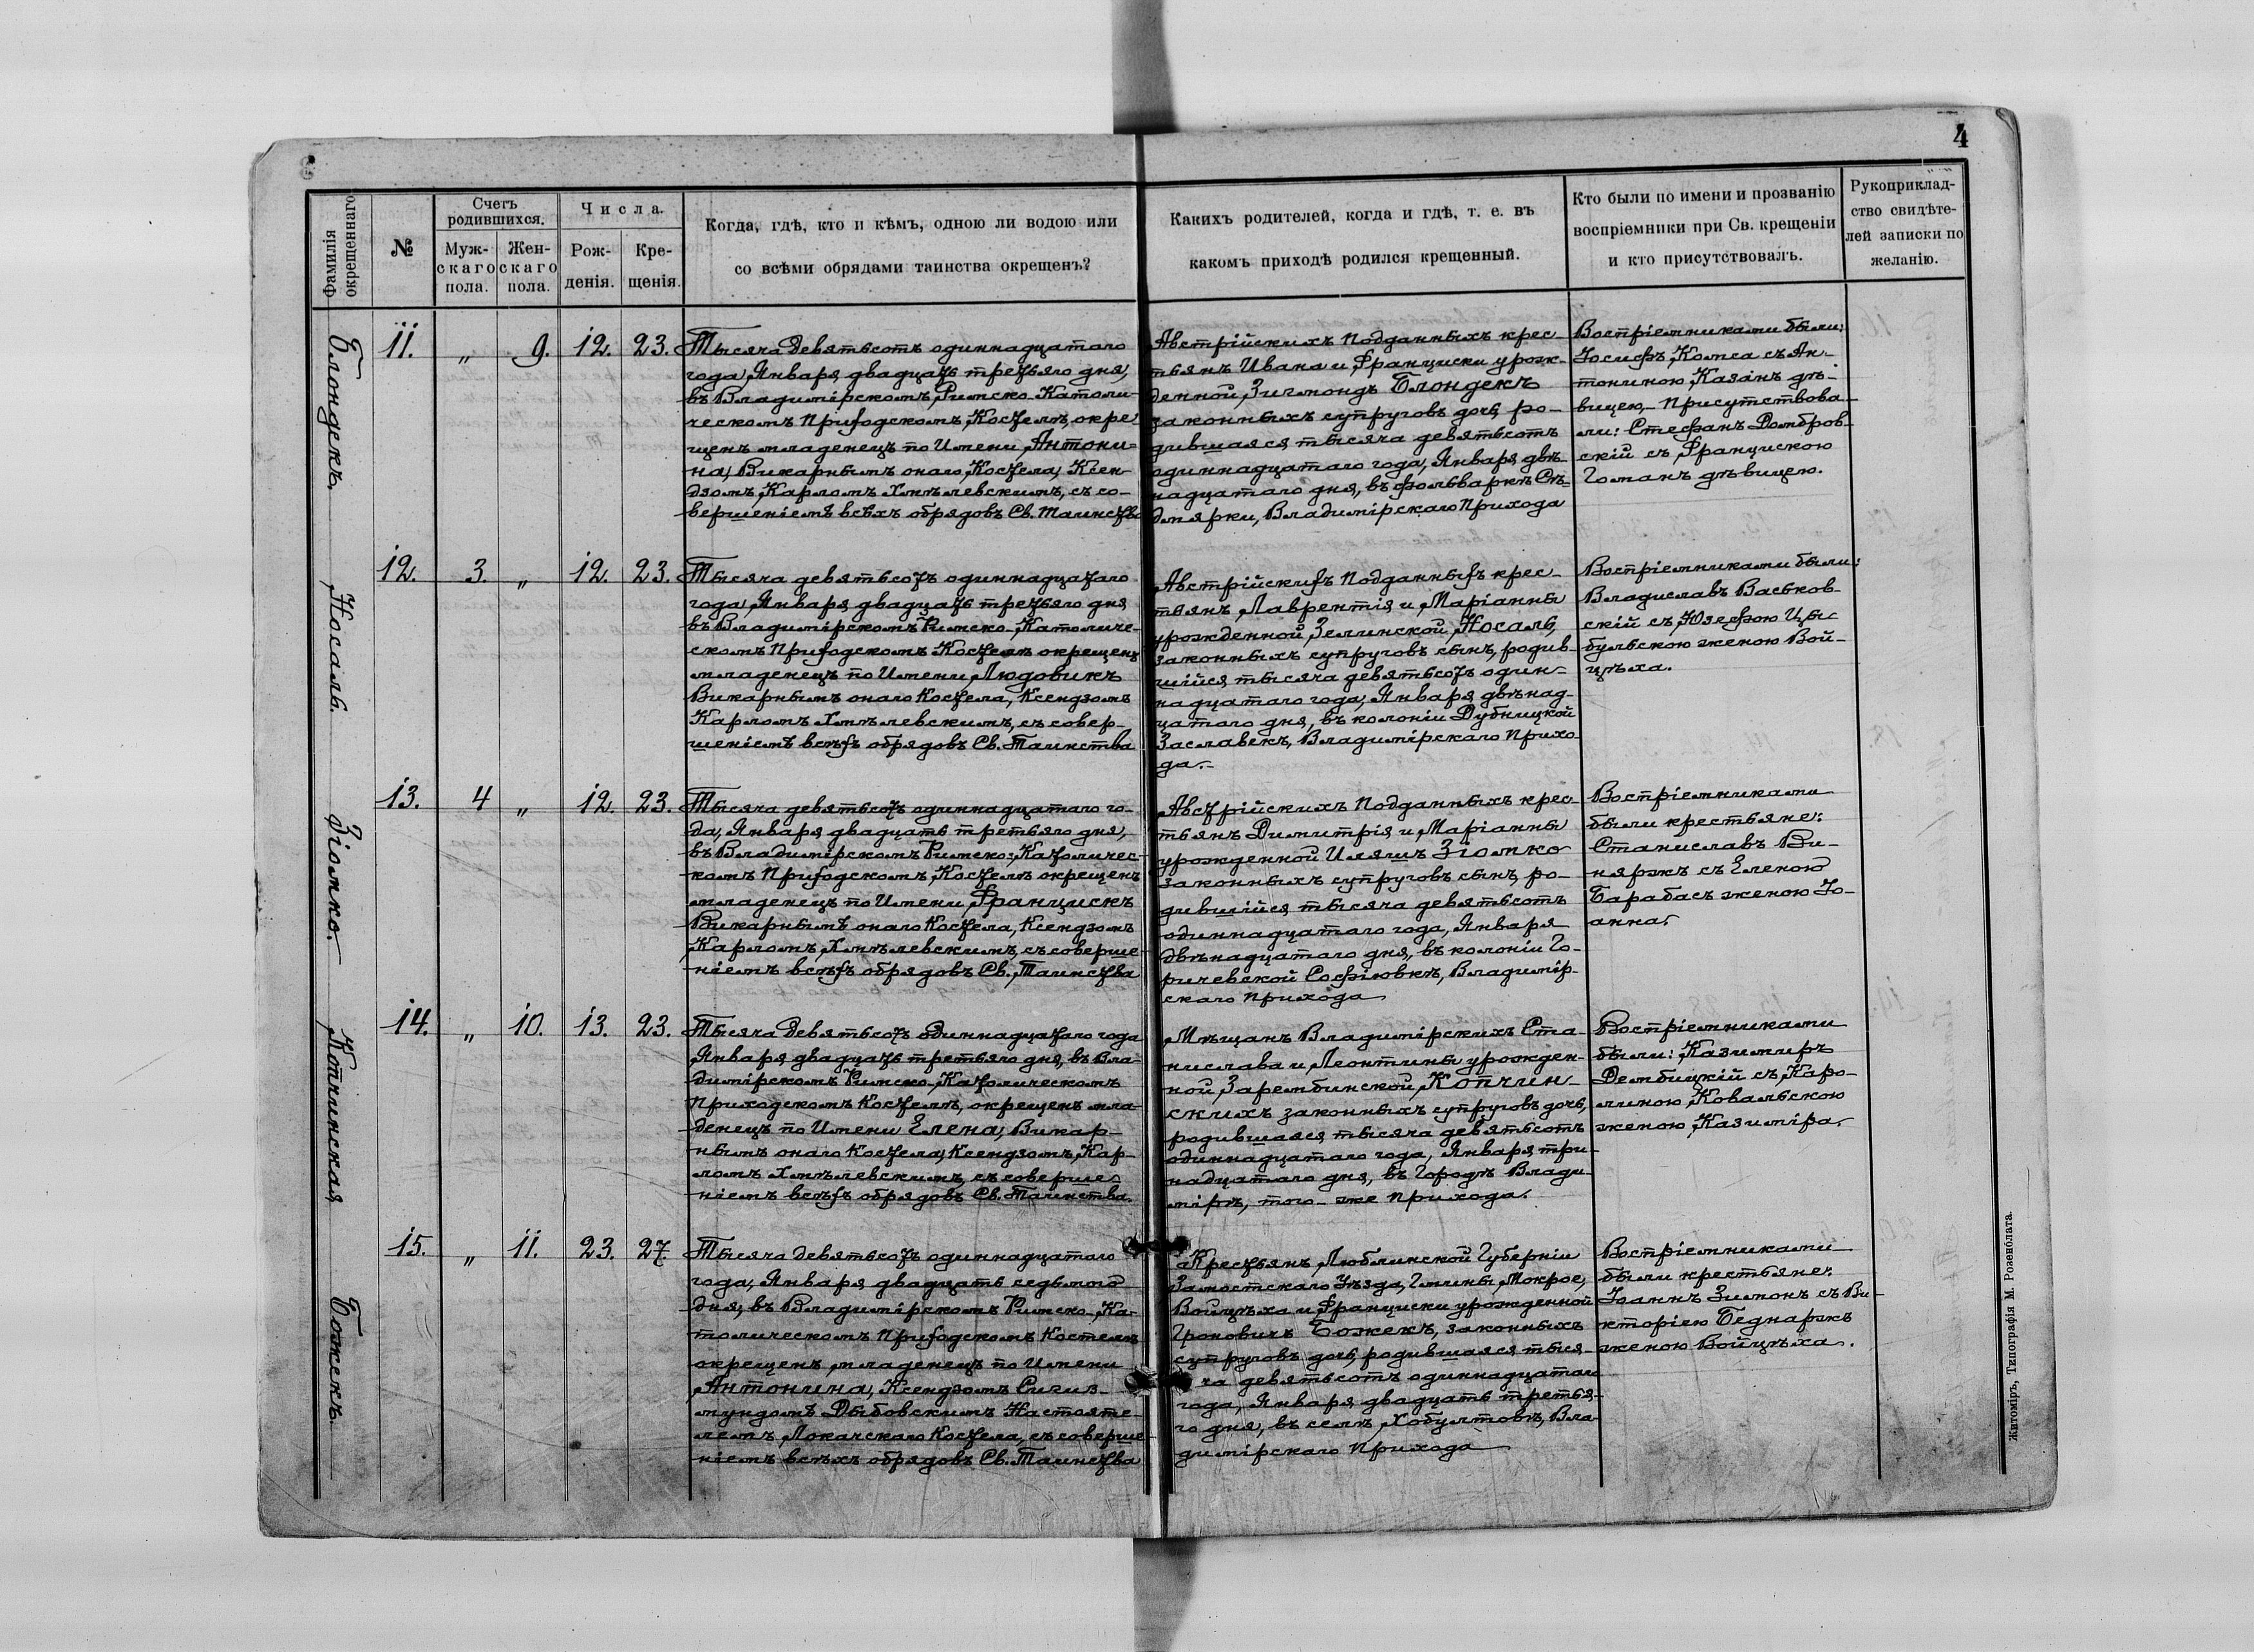 4
Фамилія окрещеннаго
№
Счетъ родившихся.
Муж-скаго пола.
Жен-скаго пола.
Числа.
Рож-денія.
Кре-щенія.
Когда, гдѣ, кто и кѣмъ, одною ли водою или
со всѣми обрядами таинства окрещенъ?
Какихъ родителей, когда и гдѣ, т. е. въ
какомъ приходѣ родился крещенный.
Кто были по имени и прозванію
воспріемники при Св. крещеніи
и кто присутствовалъ.
Рукоприклад-
ство свидѣте-
лей записки по
желанію.
Блондекъ.
11. „ 9. 12. 23.
Тысяча девятьсотъ одиннадцатаго
года, Января двадцать третьяго дня,
въ Владимірскомъ Римско-Католи-
ческомъ Приходскомъ Костелѣ, окре
щенъ младенецъ по Имени Антони-
на, Викарнымъ онаго Костела, Ксен-
дзомъ Карломъ Хмѣлевскимъ, съ со-
вершеніемъ всѣхъ обрядовъ Св. таинства
Австрійскихъ Подданныхъ крес-
тьянъ Ивана и Франциски урож-
денной Зигмондъ Блондекъ
законныхъ супруговъ дочь, ро-
дившаяся тысяча девятьсотъ
одиннадцатаго года, Января двѣ-
надцатаго дня, въ фольваркѣ Сѣ-
дмярки, Владимірскаго Прихода
Воспріемниками были:
Іосифъ Комса съ Ан-
тониною Казанъ дѣ-
вицею. Присутствова-
ли: Стефанъ Домбров-
скій съ Францискою
Гоманъ дѣвицею.
Носаль.
12. 3. „ 12. 23.
Тысяча девятьсотъ одиннадцатаго
года, Января двадцать третьяго дня
въ Владимірскомъ Римско-Католиче-
скомъ Приходскомъ Костелѣ окрещенъ
младенецъ по Имени Людовикъ
Викарнымъ онаго Костела, Ксендзомъ
Карломъ Хмѣлевскимъ, съ совер-
шеніемъ всѣхъ обрядовъ Св. Таинства
Австрійскихъ Подданныхъ крес-
тьянъ Лаврентія и Маріанны
урожденной Зелинской Носаль,
законныхъ супруговъ сынъ, родив-
шійся тысяча девятьсотъ один-
надцатаго года, Января двѣнад-
цатаго дня, въ колоніи Дубницкой
Заславекъ, Владимірскаго Прихо
да.
Воспріемниками были:
Владиславъ Васьков-
скій съ Юзефою Цыс
бульскою женою Вой-
цѣха.
Зіомко.
13. 4 „ 12. 23.
Тысяча девятьсотъ одиннадцатаго го-
да, Января двадцать третьяго дня,
въ Владимірскомъ Римско-Католичес-
комъ Приходскомъ Костелѣ окрещенъ
младенецъ по Имени Францискъ
Викарнымъ онаго Костела, Ксендзомъ
Карломъ Хмѣлевскимъ, съ соверше-
ніемъ всѣхъ обрядовъ Св. Таинства
Австрійскихъ Подданныхъ крес-
тьянъ Димитрія и Маріанны
урожденной Иляшъ Зіомко
законныхъ супруговъ сынъ, ро-
дившійся тысяча девятьсотъ
одиннадцатаго года, Января
двѣнадцатаго дня, въ колоніи Го-
ричевской Софіювкѣ, Владимір-
скаго Прихода
Воспріемниками
были крестьяне:
Станиславъ Ви-
няржъ съ Еленою
Барабасъ женою Іо-
анна.
Копчинская
14. „ 10. 13. 23.
Тысяча Девятьсотъ одиннадцатаго года
Января двадцать третьяго дня, въ Вла-
димірскомъ Римско-Католическомъ
Приходскомъ Костелѣ, окрещенъ мла-
денецъ по Имени Елена, Викар-
нымъ онаго Костела, Ксендзомъ Кар-
ломъ Хмѣлевскимъ, съ соверше-
ніемъ всѣхъ обрядовъ Св. Таинства.
Мѣщанъ Владимірскихъ Ста-
нислава и Леонтины урожден-
ной Зарембинской Копчин-
скихъ законныхъ супруговъ дочь,
родившаяся тысяча девятьсотъ
одиннадцатаго года, Января три-
надцатаго дня, въ Городѣ Влади-
мірѣ, того-же Прихода.
Воспріемниками
были: Казимиръ
Дембицкій съ Каро-
линою Ковальскою
женою Казиміра.
Божекъ.
15. „ 11. 23. 27.
Тысяча девятьсотъ одиннадцатаго
года, Января двадцать седьмого
дня, въ Владимірскомъ Римско-Ка-
толическомъ Приходскомъ Костелѣ
окрещенъ младенецъ по Имени
Антонина, Ксендзомъ Сигиз-
мундомъ Дыбовскимъ Настояте-
лемъ Локачскаго Костела, съ соверше
ніемъ всѣхъ обрядовъ Св. Таинства
Крестьянъ Люблинской Губерніи
Замостскаго Уѣзда, Гмины Мокрое,
Войцѣха и Франциски урожденной
Гроновичъ Божекъ, законныхъ
супруговъ дочь, родившаяся тыся-
ча девятьсотъ одиннадцатаго
года, Января двадцать третья-
го дня, въ селѣ Хобултовѣ, Вла-
димірскаго Прихода
Воспріемниками
были крестьяне:
Іоаннъ Зимонъ съ Ви-
кторіею Беднаржъ
женою Войцѣха.
Житоміръ, Типографія М. Розенблата.